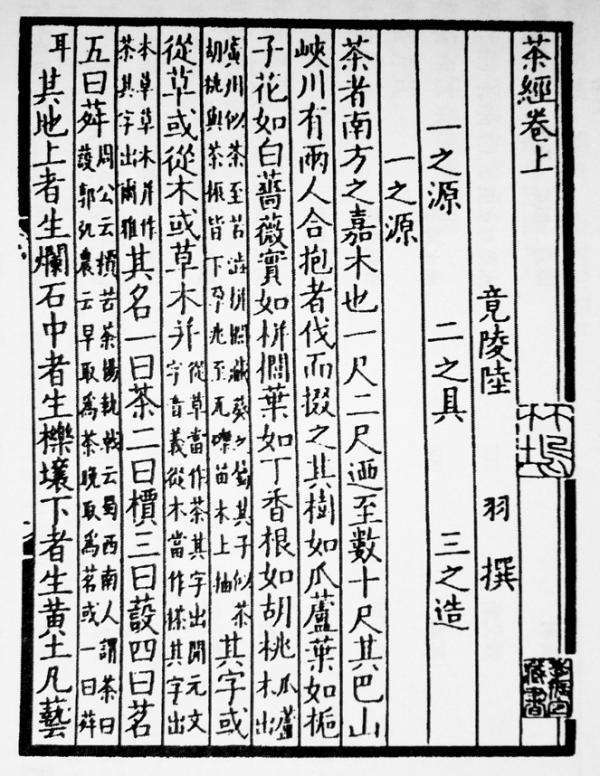 茶經卷上
竟陵陸羽撰
一之源 二之具 三之造
一之源
茶者南方之嘉木也一尺二尺迺至數十尺其巴山
峽川有兩人合抱者伐而掇之其樹如瓜蘆葉如梔
子花如白薔薇實如栟櫚葉如丁香根如胡桃瓜蘆木出
廣州似茶至苦澁栟櫚葵之其子似茶
胡桃與茶根皆下孕兆至瓦礫苗木上抽
其字或
從草或從木或草木并
從草當作茶其字出開元文
字音義從木當作搽其字出
本草草木并作
茶其字出爾雅
其名一曰茶二曰檟三曰蔎四曰茗
五曰荈
周公云檟苦茶揚執戟云蜀西南人謂茶曰
蔎郭弘農云早取爲茶晚取爲茗或一曰荈
耳其地上者生爛石中者生櫟壤下者生黄土凡藝